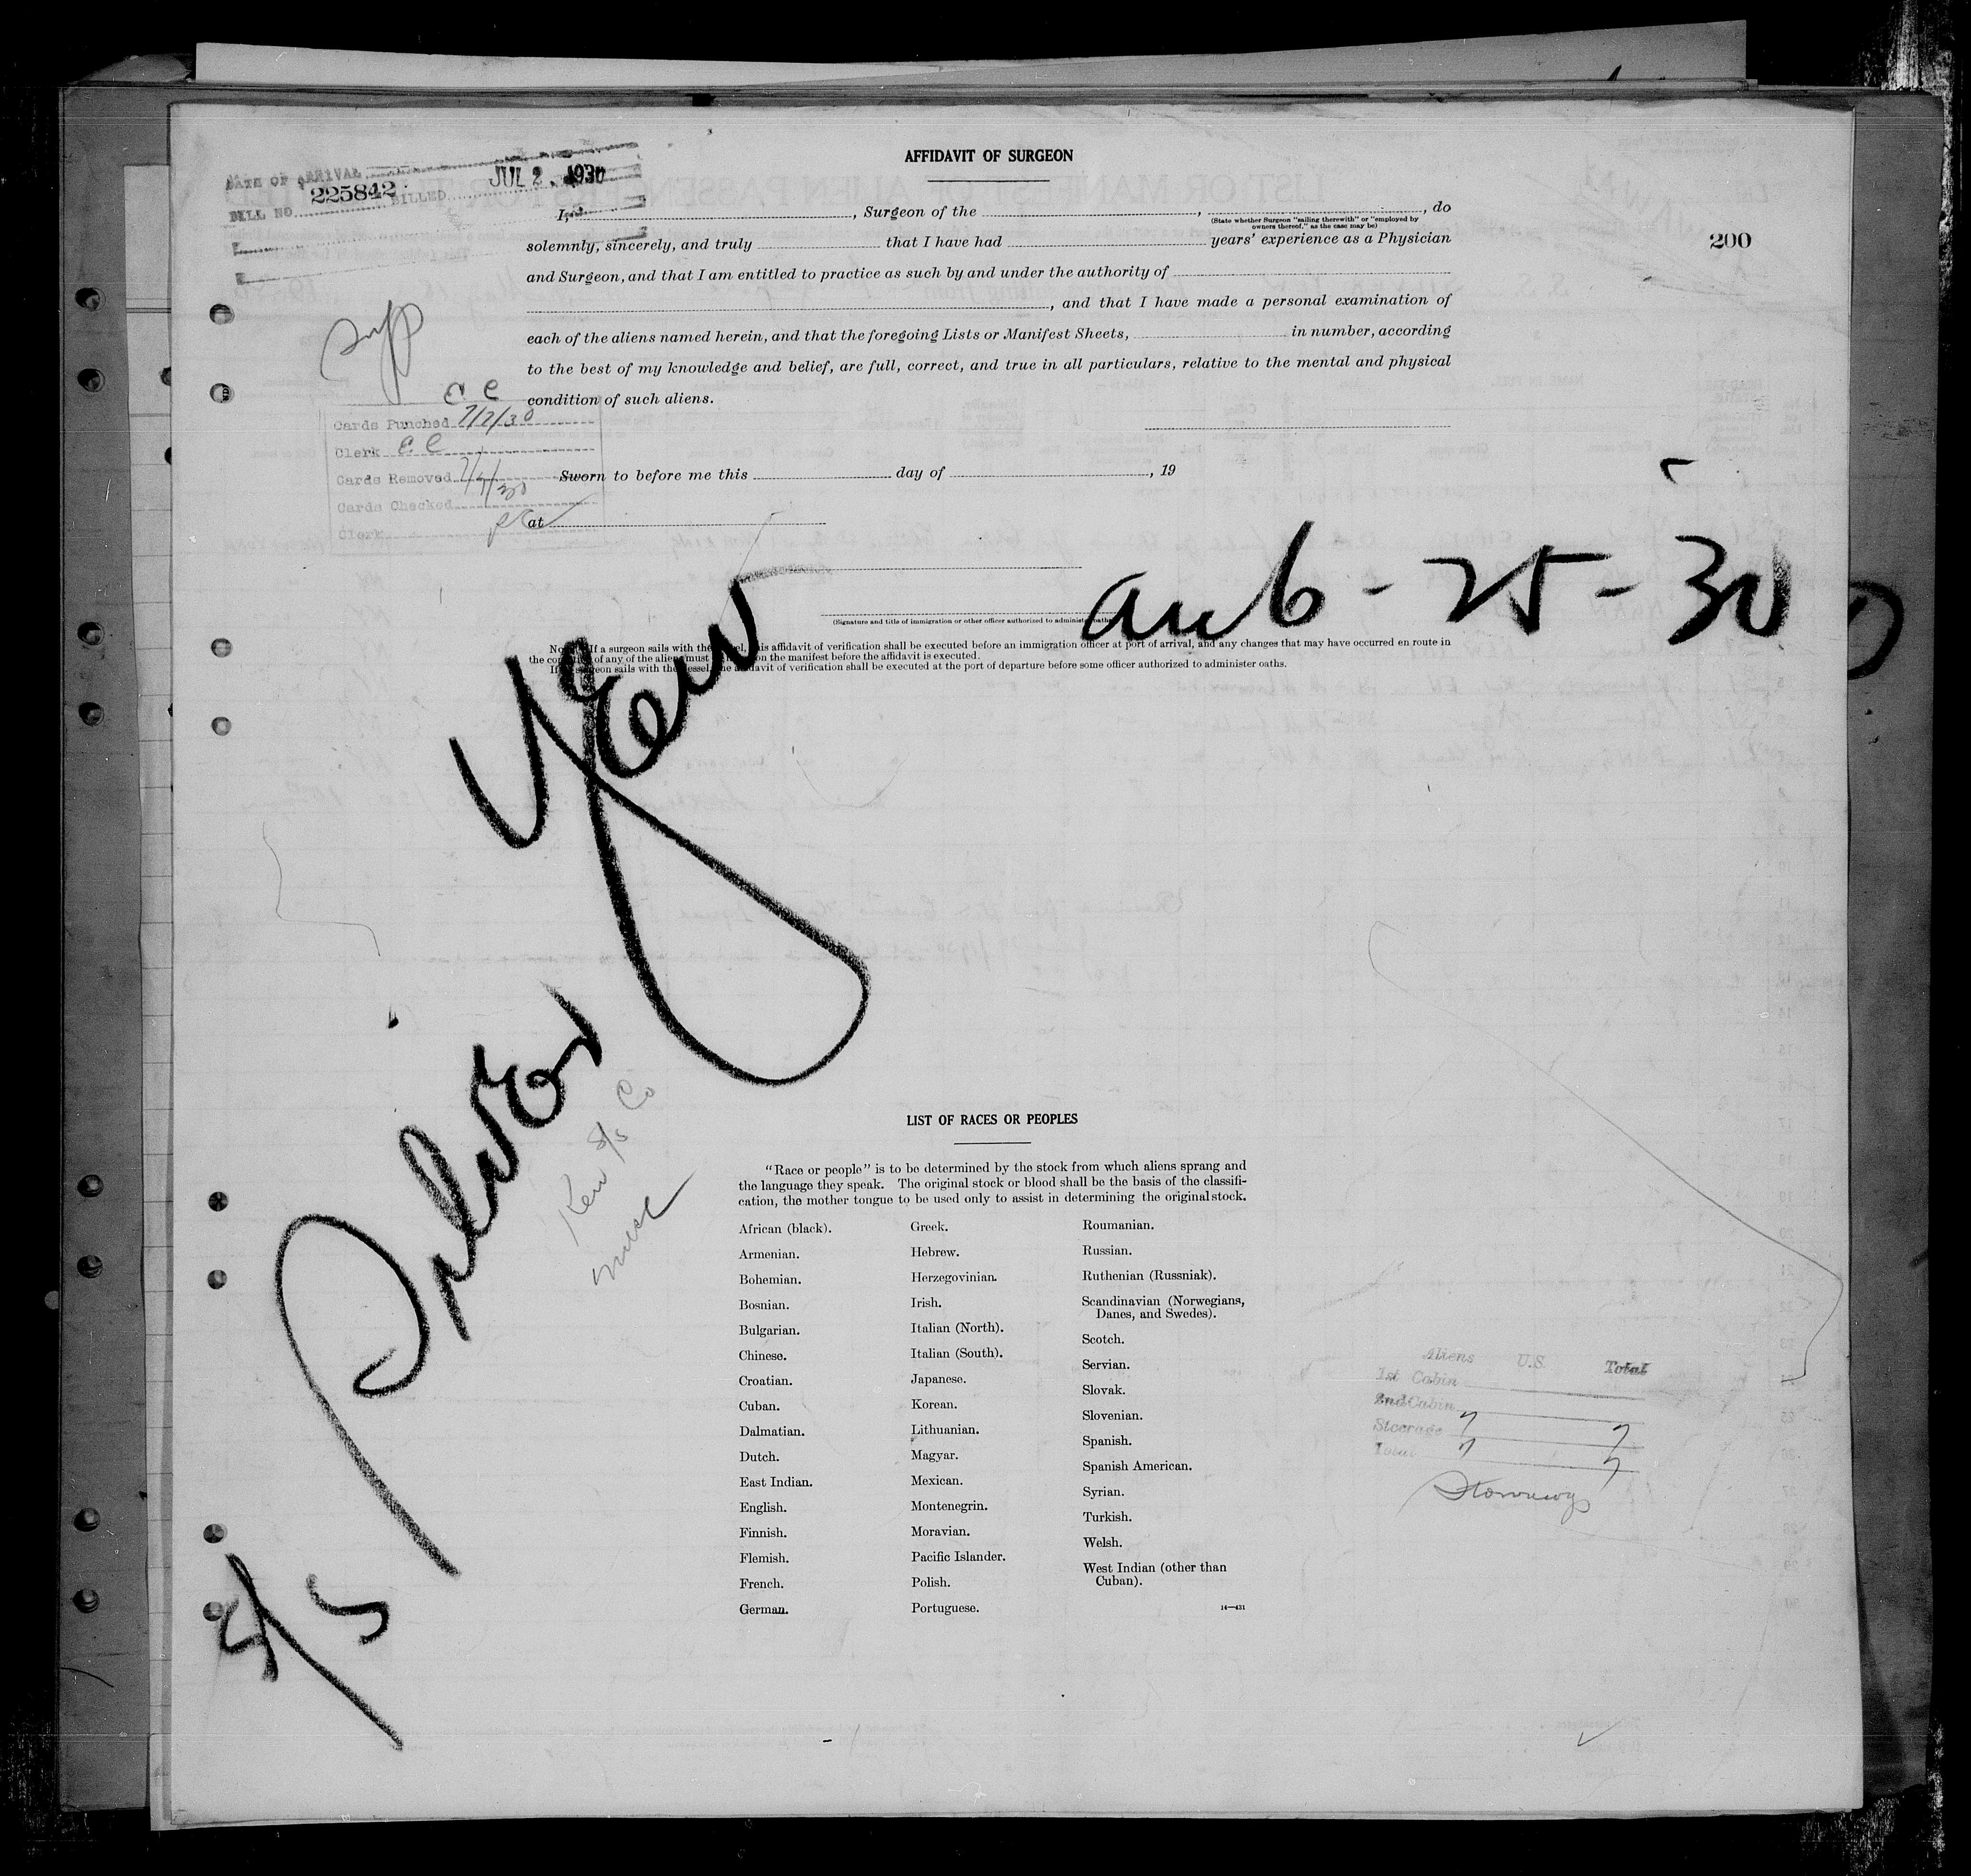 AFFIDAVIT OF SURGEON
DATE OF ARRIVAL
BILL NO. 225842 BILLED JUL 2 1930
200
I, , Surgeon of the , , do
(State whether Surgeon "sailing therewith" or "employed by owners thereof," as the case may be)
solemnly, sincerely, and truly that I have had years' experience as a Physician
and Surgeon, and that I am entitled to practice as such by and under the authority of
, and that I have made a personal examination of
each of the aliens named herein, and that the foregoing Lists or Manifest Sheets, in number, according
to the best of my knowledge and belief, are full, correct, and true in all particulars, relative to the mental and physical
condition of such aliens.
Supp
E C
Cards Punched 7/7/30
Clerk E C
Cards Removed 7/7/30
Cards Checked
Clerk
Sworn to before me this day of , 19
at
(Signature and title of immigration or other officer authorized to administer oaths)
arr 6-25-30
Note.—If a surgeon sails with the vessel, this affidavit of verification shall be executed before an immigration officer at port of arrival, and any changes that may have occurred en route in
the condition of any of the aliens must on the manifest before the affidavit is executed.
If surgeon sails with the vessel, the affidavit of verification shall be executed at the port of departure before some officer authorized to administer oaths.
S/S Silver Yew
Kerr S/S Co
LIST OF RACES OR PEOPLES
"Race or people" is to be determined by the stock from which aliens sprang and
the language they speak. The original stock or blood shall be the basis of the classifi-
cation, the mother tongue to be used only to assist in determining the original stock.
African (black).
Armenian.
Bohemian.
Bosnian.
Bulgarian.
Chinese.
Croatian.
Cuban.
Dalmatian.
Dutch.
East Indian.
English.
Finnish.
Flemish.
French.
German.
Greek.
Hebrew.
Herzegovinian.
Irish.
Italian (North).
Italian (South).
Japanese.
Korean.
Lithuanian.
Magyar.
Mexican.
Montenegrin.
Moravian.
Pacific Islander.
Polish.
Portuguese.
Roumanian.
Russian.
Ruthenian (Russniak).
Scandinavian (Norwegians,
Danes, and Swedes).
Scotch.
Servian.
Slovak.
Slovenian.
Spanish.
Spanish American.
Syrian.
Turkish.
Welsh.
West Indian (other than
Cuban).
14—431
Aliens U.S. Total
1st Cabin
2nd Cabin
Steerage 7 7
Total 7 7
Stowaways